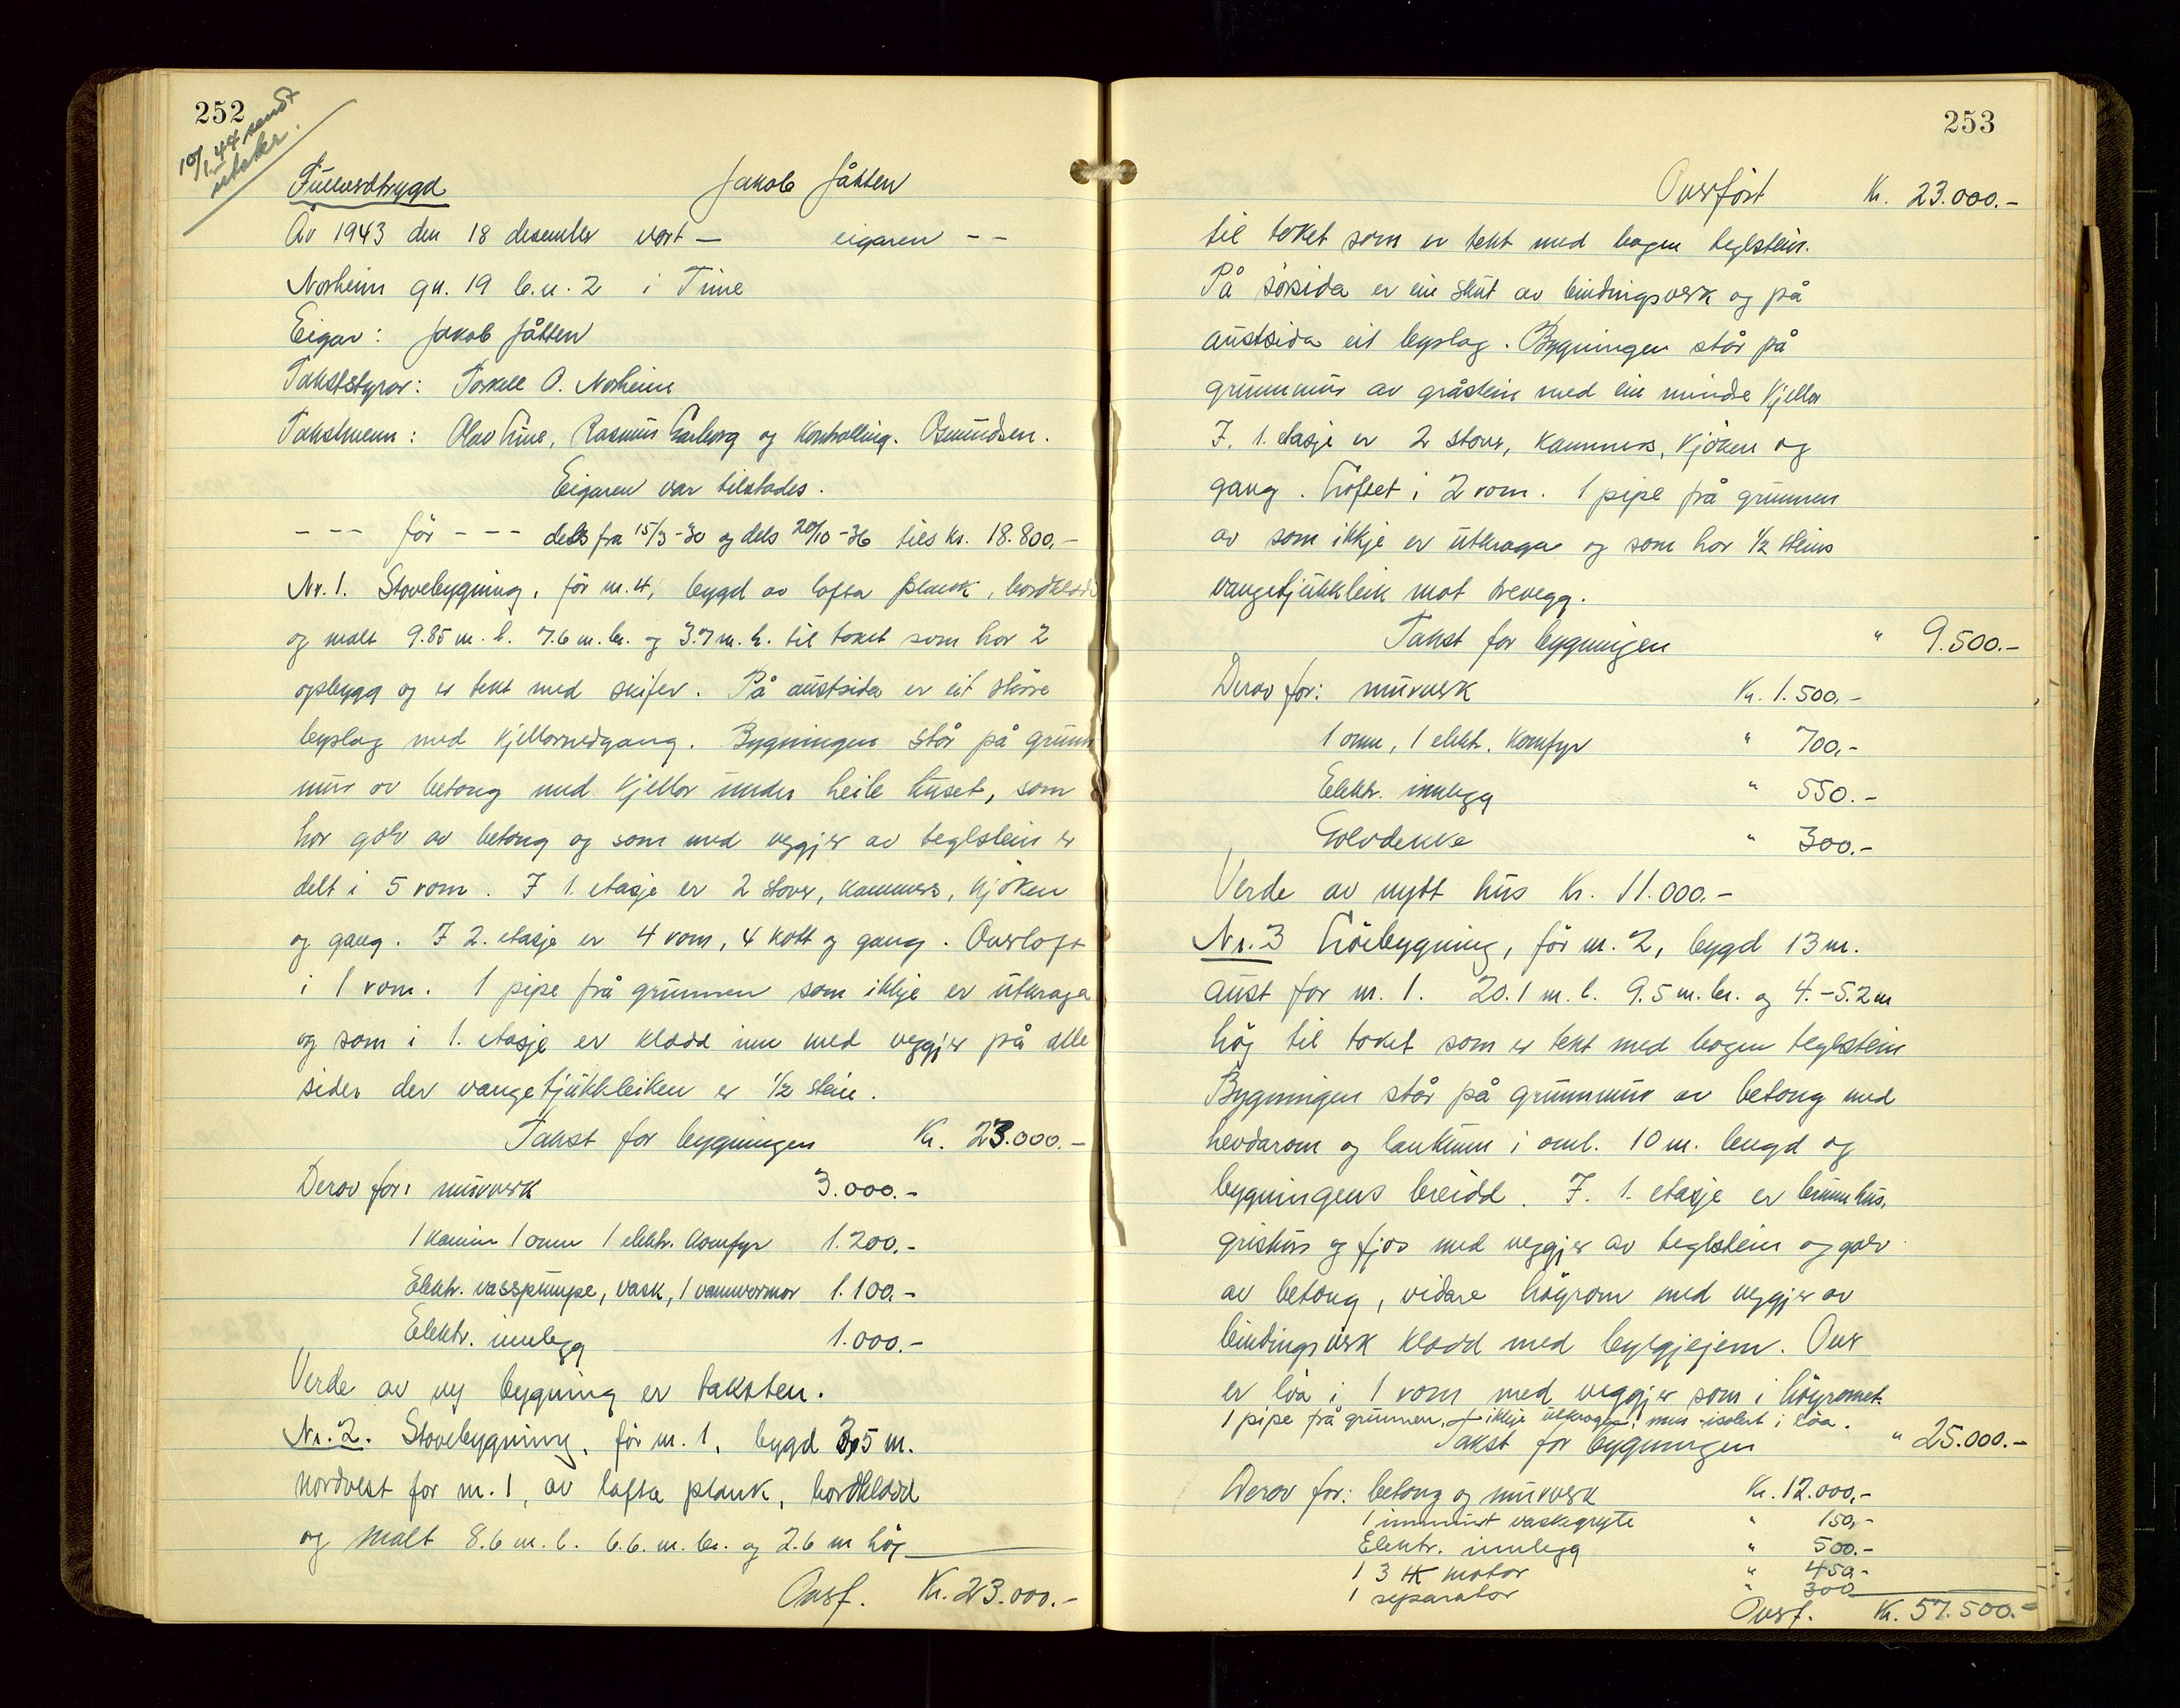 252
10/1.44 sendt
utskr.
Fullverdtrygd Jakob Jåtten
År 1943 den 18 desember vart — eigaren — —
Norheim gn. 19 b.n. 2 i Time
Eigar: Jakob Jåtten
Takststyrar: Torkell O. Norheim
Takstmenn: Olav Time, Rasmus Garborg og kontrolling. Osmundsen.
Eigaren var tilstades.
– – – før – – – dels fra 15/3-30 og dels 20/10-36 til kr. 18.800,-
Nr. 1. Stovebygning, før nr. 4, bygd av lafta plank, bordkledd
og malt 9.85 m. l. 7.6 m. br. og 3.7 m. h. til taket som har 2
opbygg og er tekt med skifer. På austsida er eit større
byslag med kjellarnedgang. Bygningen står på grunn
mur av betong med kjellar under heile huset, som
har golv av betong og som med veggjer av teglstein er
delt i 5 rom. I 1. etasje er 2 stover, kammers, kjøken
og gang. I 2. etasje er 4 rom, 4 kott og gang. Overloft
i 1 rom. 1 pipe frå grunnen som ikkje er utkraga
og som i 1. etasje er kledd inn med veggjer på alle
sider der vangetjukkleiken er 1/2 stein.
Takst for bygningen Kr. 23.000.-
Derav for: murverk 3.000.-
1 kamin 1 omn 1 elektr. komfyr 1.200.-
Elektr. vasspumpe, vask, 1 vannvarmar 1.100.-
Elektr. innlegg 1.000.-
Verde av ny bygning er taksten.
Nr. 2. Stovebygning, før nr. 1, bygd 35 m.
nordvest for nr. 1, av lafta plank, bordkledd
og malt 8.6 m. l. 6.6. m. br. og 2.6 m høg
Overf. Kr. 23.000.-
253
Overført Kr. 23.000.-
til taket som er tekt med bogen teglstein.
På sørsida er ein skut av bindingsverk og på
austsida eit byslag. Bygningen står på
grunnmur av gråstein med ein mindre kjellar
I. 1. etasje er 2 stover, kammers, kjøken og
gang. Loftet i 2 rom. 1 pipe frå grunnen
av som ikkje er utkraga og som har 1/2 steins
vangetjukkleik mot trevegg.
Takst for bygningen " 9.500.-
Derav for: murverk Kr. 1.500,-
1 omn, 1 elektr. komfyr " 700,-
Elektr. innlegg " 550.-
Golvdekke " 300.-
Verde av nytt hus Kr. 11.000.-
Nr. 3 Løebygning, før nr. 2, bygd 13 m.
aust for nr. 1. 20.1 m. l. 9.5 m. br. og 4.-5.2 m
høg til taket som er tekt med bogen teglstein
Bygningen står på grunnmur av betong med
hevdarom og landkum i oml. 10 m. lengd og
bygningens breidd. I. 1. etasje er brunnhus,
grishus og fjos med veggjer av teglstein og golv
av betong, vidare høyrom med veggjer av
bindingsverk kledd med bylgjejern. Over
er løa i 1 rom med veggjer som i høyromet.
1 pipe frå grunnen, ikkje utkraga, men isolert i løa.
Takst for bygningen " 25.000.-
Derav for: betong og murverk Kr. 12.000,-
1 innmurt vaskegryte " 150,-
Elektr. innlegg " 500.-
1 3 HK motor " 450.-
1 separator " 300
Overf. Kr. 57.500.-